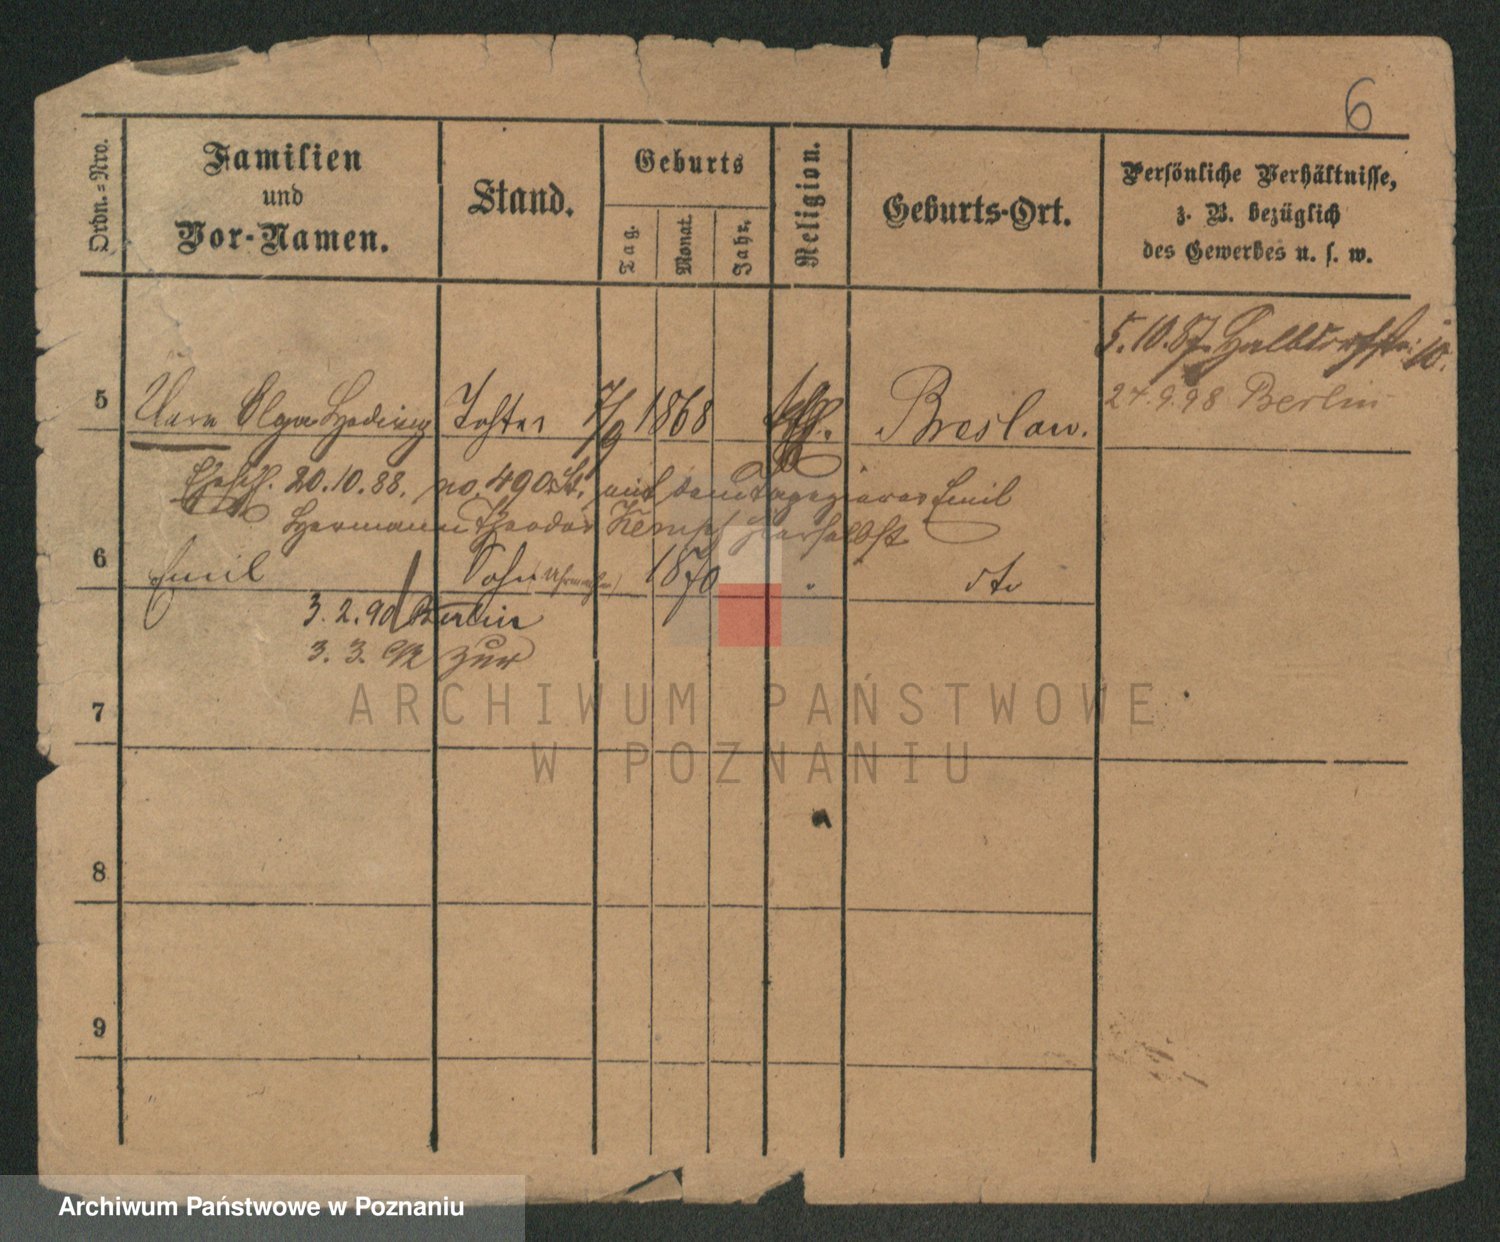 6
Ordn.-Nro.
Familien
und
Vor-Namen.
Stand.
Geburts
Tag.
Monat.
Jahr.
Religion.
Geburts-Ort.
Persönliche Verhältnisse,
z. B. bezüglich
des Gewerbes u. s. w.
5.10.87. Halbdorfstr. 10.
27.9.98 Berlin
5 Clara Olga Hedwig Tochter 7/9 1868 Breslau.
20.10.88. no. 490 mit dem Tapezierer Emil
Hermann Theodor Kempf hierselbst
6 Emil Sohn (Uhrmacher) 1870 " dto
3.2.90 Berlin
3.3.92 zur
7
8
9
ARCHIWUM PAŃSTWOWE
W POZNANIU
Archiwum Państwowe w Poznaniu